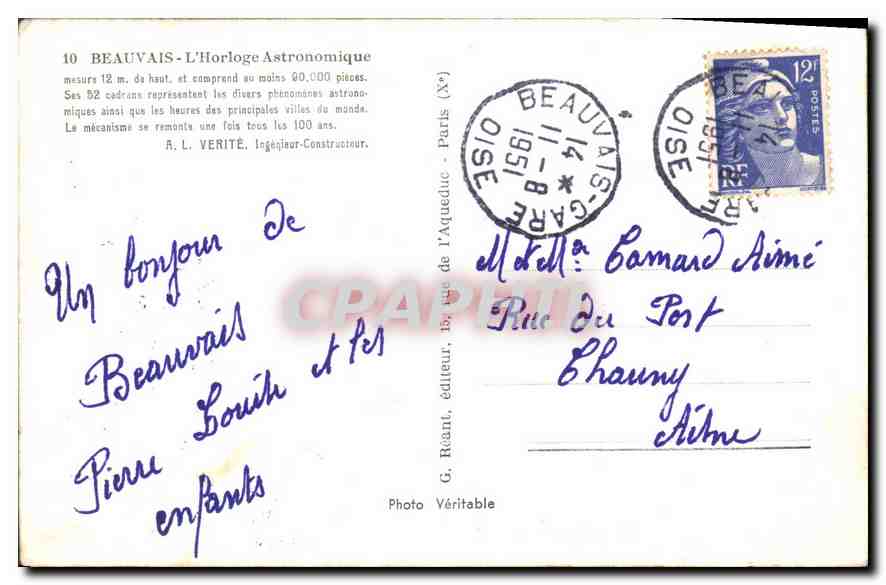 10 BEAUVAIS - L'Horloge Astronomique
mesure 12 m. de haut. et comprend au moins 90.000 pièces.
Ses 52 cadrans représentent les divers phénomènes astrono-
miques ainsi que les heures des principales villes du monde.
Le mécanisme se remonte une fois tous les 100 ans.
A. L. VERITÉ, Ingénieur-Constructeur.
Un bonjour de
Beauvais
Pierre et les
enfants
G. Réant, éditeur, 15, rue de l'Aqueduc - Paris (Xe)
Photo Véritable
BEAUVAIS-GARE
14 *
11 - 8
1951
OISE
BEAUVAIS-GARE
14
11 - 8
1951
OISE
12F
POSTES
RF
M et Me Camard Aimé
Rue du Port
Chauny
Aisne
CPAPHIL